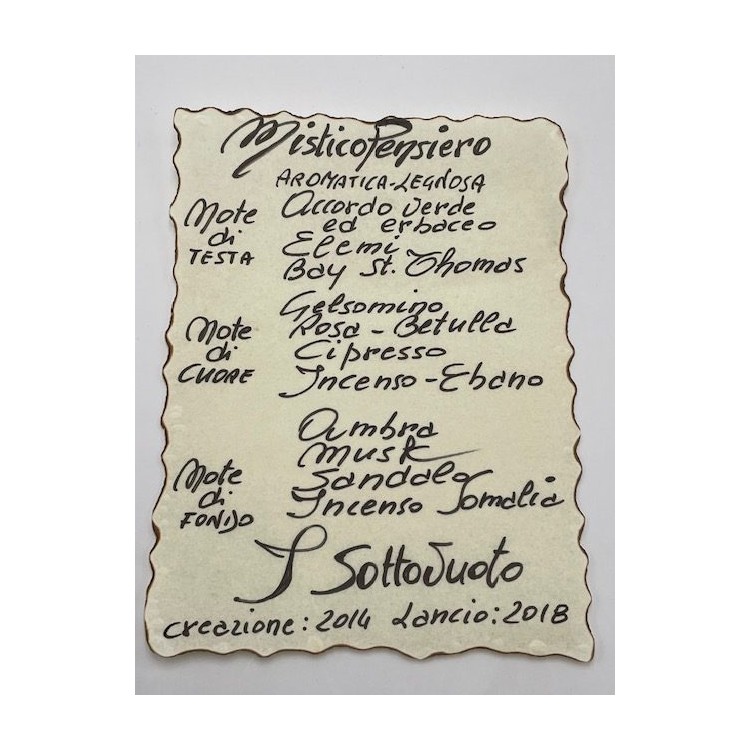 MisticoPensiero
AROMATICA-LEGNOSA
Note di TESTA
Accordo verde
ed erbaceo
Elemi
Bay St. Thomas
Note di CUORE
Gelsomino
Rosa - Betulla
Cipresso
Incenso - Ebano
Note di FONDO
Ambra
Musk
Sandalo
Incenso Somalia
I Sottovuoto
creazione: 2014 Lancio: 2018